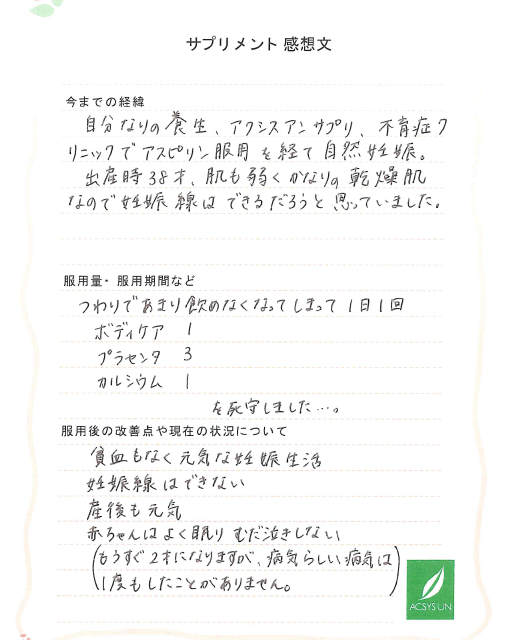 サプリメント 感想文
今までの経緯
自分なりの養生、アクシスアンサプリ、不育症ク
リニックでアスピリン服用を経て自然妊娠。
出産時38才、肌も弱くかなりの乾燥肌
なので妊娠線はできるだろうと思っていました。
服用量・服用期間など
つわりであまり飲めなくなってしまって1日1回
ボディケア 1
プラセンタ 3
カルシウム 1
を死守しました…。
服用後の改善点や現在の状況について
貧血もなく元気な妊娠生活
妊娠線はできない
産後も元気
赤ちゃんはよく眠りむだ泣きしない
(もうすぐ2才になりますが、病気らしい病気は
1度もしたことがありません。)
ACSYSUN